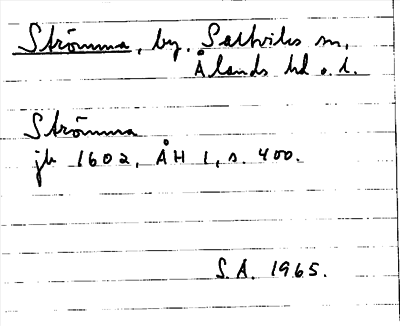 Strömma, by. Saltviks sn,
Ålands hd o. l.
Strömma
jb 1602, ÅH 1, s. 400.
S.A. 1965.